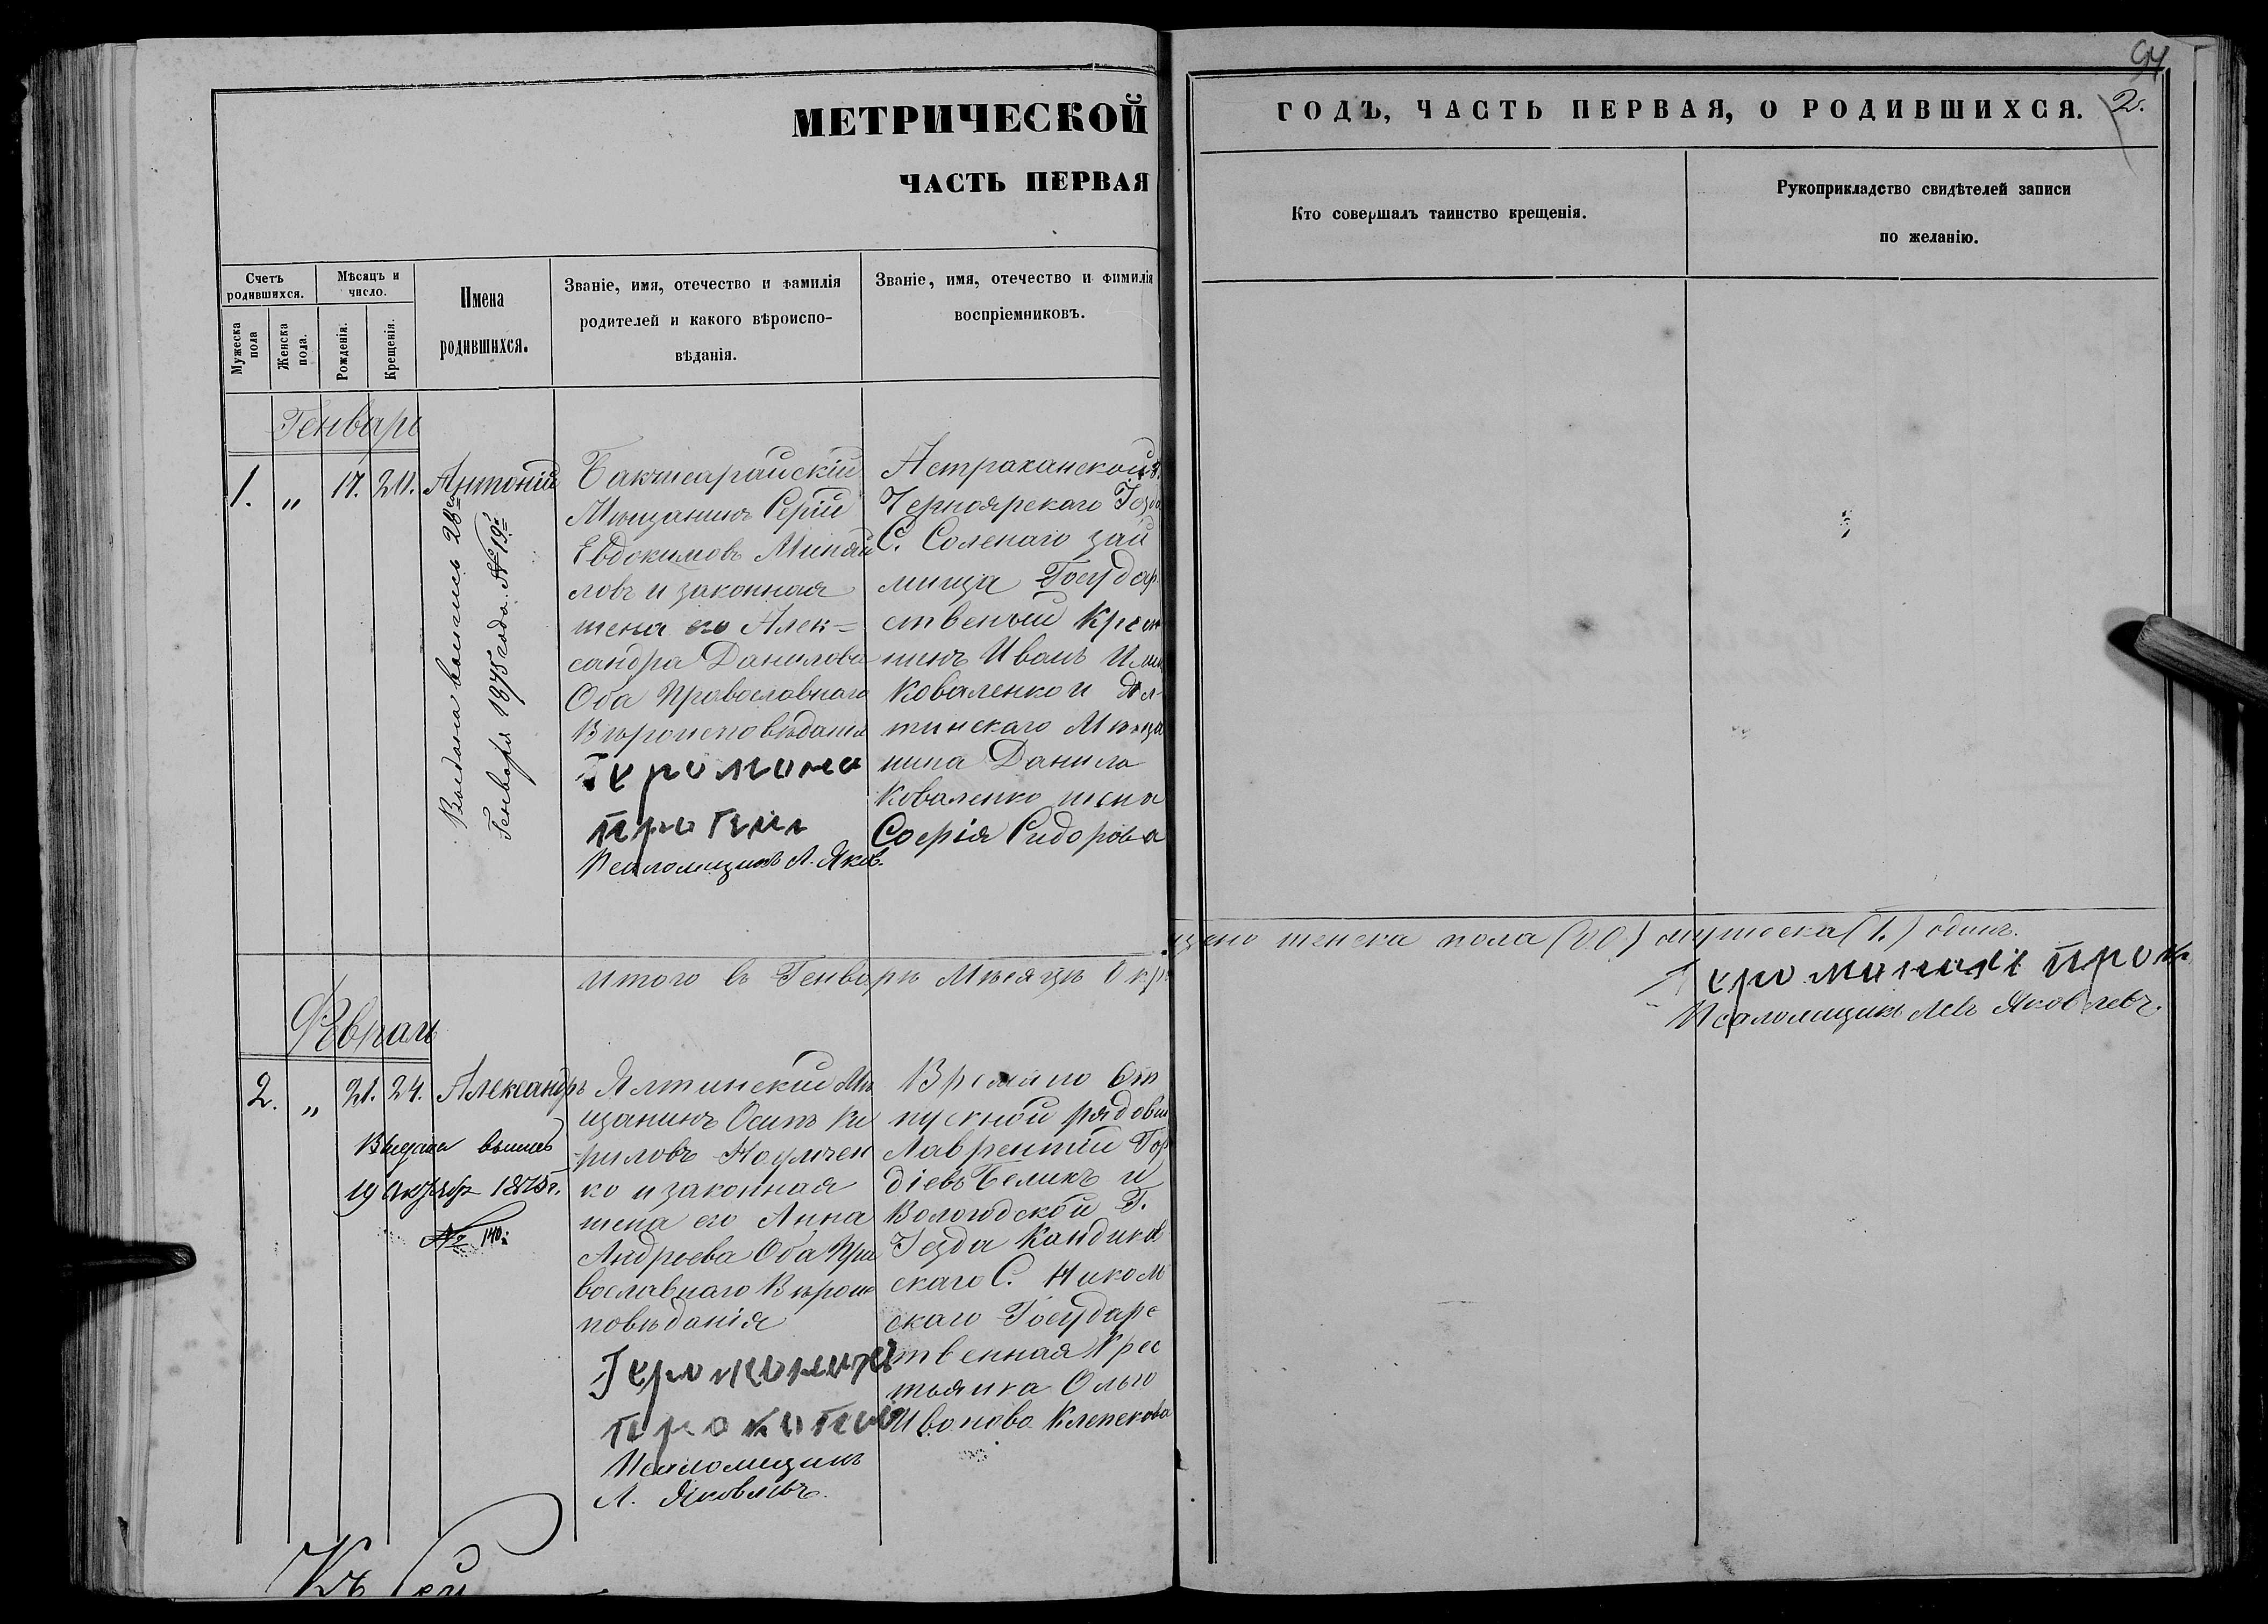 94
2.
МЕТРИЧЕСКОЙ
ЧАСТЬ ПЕРВАЯ
ГОДЪ, ЧАСТЬ ПЕРВАЯ, О РОДИВШИХСЯ.
Счетъ родившихся.
Мужеска пола
Женска пола.
Мѣсяцъ и число.
Рожденія.
Крещенія.
Имена
родившихся.
Званіе, имя, отечество и фамилія
родителей и какого вѣроиспо-
вѣданія.
Званіе, имя, отечество и фимилія
воспріемниковъ.
Кто совершалъ таинство крещенія.
Рукоприкладство свидѣтелей записи
по желанію.
Генварь
1. „ 17. 20. Антоній
Выдана выпись 28го
Генваря 1875 года № 19й
Бакчисарайскій
Мѣщанинъ Сергій
Евдокимовъ Минай
ловъ и законная
жена его Алек=
сандра Данилова
Оба Православнаго
Вѣроисповѣданія
Іеромона
Псаломщикъ Л. Яков.
Астраханской Г.
Черноярскаго Уезда
С. Соленаго зай
мища Государ
ственый Крест
нинъ Иванъ
Коваленко и Ял-
тинскаго Мѣща
нина Данила
Коваленко жена
Софія Сидорова
итого въ Генварѣ Мѣсяцѣ Окр
щено женска пола (00) мужеска (1.) одинъ.
Іеромонахъ Прок
Псаломщикъ Левъ Яковлевъ.
Февраль
2. „ 21. 24. Александръ
Выдана выпись
19 Октября 1875 г.
№ 140.
Ялтинскій Мѣ
щанинъ Осипъ Ки
риловъ Науменко
ко и законная
жена его Анна
Андреева Оба Пра
вославнаго Вѣроис
повѣданія
Іеромонахъ
Прокопій
Псаломщикъ
Л. Яковлевъ.
Времяно От
пускной рядовый
Лаврентій Гор
діевъ Беликъ и
Вологодской Г.
Уезда Кандиков
скаго С. Николь
скаго Государс
твенная Крес
тьянка Ольга
Иванова Клепикова
Къ сей